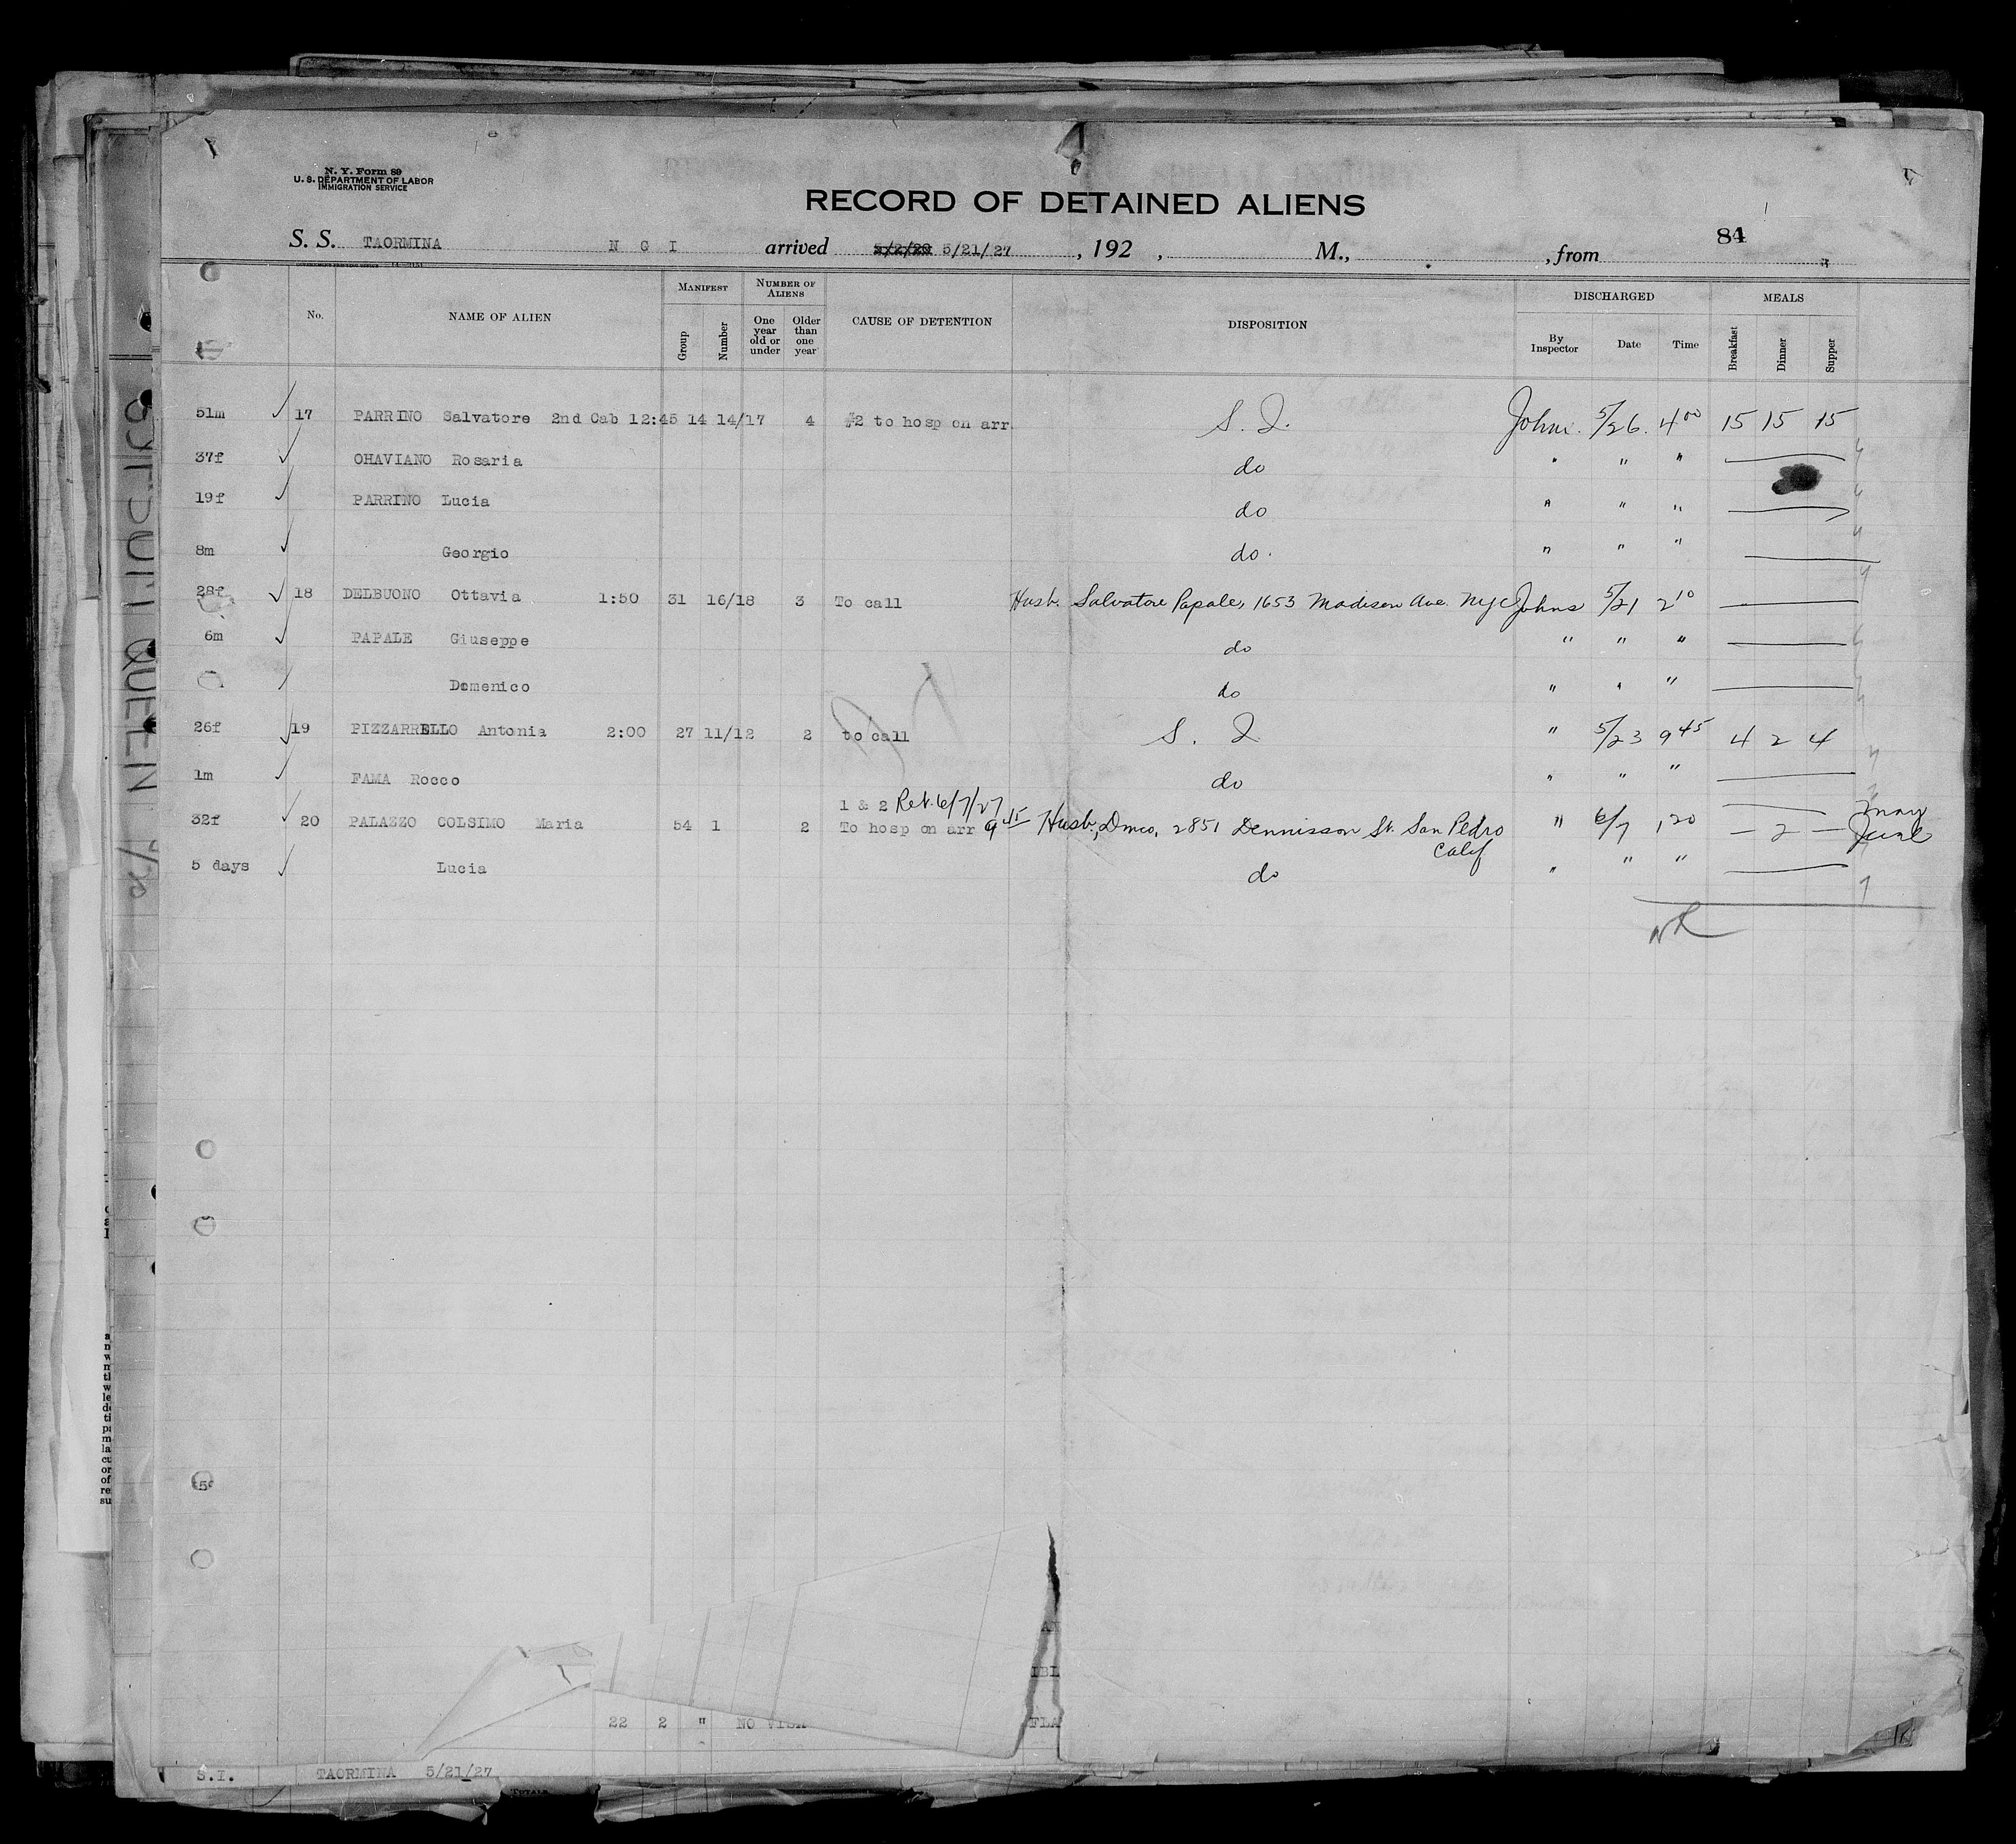 N. Y. Form 89
U. S. DEPARTMENT OF LABOR
IMMIGRATION SERVICE
RECORD OF DETAINED ALIENS
84
S. S. TAORMINA N G I arrived 5/21/27, 192 , M., , from
No. NAME OF ALIEN MANIFEST Group Number NUMBER OF ALIENS One year old or under Older than one year CAUSE OF DETENTION DISPOSITION DISCHARGED By Inspector Date Time MEALS Breakfast Dinner Supper
51m 17 PARRINO Salvatore 2nd Cab 12:45 14 14/17 4 #2 to hosp on arr. S. I. Johns. 5/26. 4 00 15 15 15
37f OHAVIANO Rosaria do " " "
19f PARRINO Lucia do " " "
8m Georgio do. " " "
28f 18 DELBUONO Ottavia 1:50 31 16/18 3 To call Husb. Salvatore Papale, 1653 Madison Ave. NYC Johns 5/21 2 10
6m PAPALE Giuseppe do " " "
Domenico do " " "
26f 19 PIZZARRELLO Antonia 2:00 27 11/12 2 to call S. I. " 5/23 9 45 4 2 4
1m FAMA Rocco do " " "
1 & 2 Ret. 6/7/27 may
32f 20 PALAZZO COLSIMO Maria 54 1 2 To hosp on arr 9 45 Husb, Dmco, 2851 Dennisson St. San Pedro " 6/7 1 20 — 2 — June
Calif
5 days Lucia do " " "
22 2 " NO VISA
IBL
FLA
S.I. TAORMINA 5/21/27
TOTALS
QUEEN